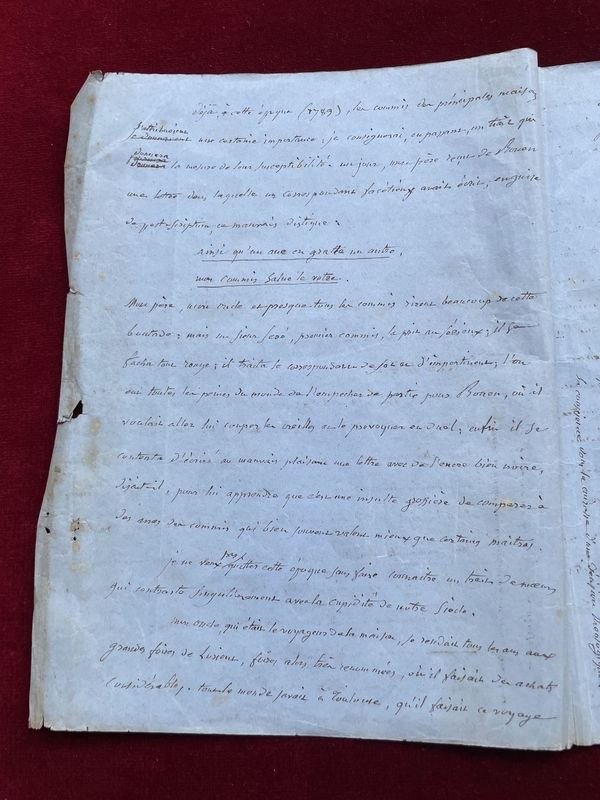 déjà, à cette époque (1789), les commis des principales maisons
s'attribuaient
une certaine importance, je consignerai, en passant, un trait qui
donnera
la mesure de leur susceptibilité. un jour, mon père reçut de Rouen
une lettre dans laquelle un correspondant facétieux avait écrit, en guise
de post-scriptum, ce mauvais distique :
ainsi qu'un âne en gratte un autre,
mon commis salue le votre.
Mon père, mon oncle et presque tous les commis rirent beaucoup de cette
boutade ; mais un sieur premier commis, le prit au sérieux ; il se
facha tout rouge ; il traita le correspondant de sot et d'impertinent ; l'on
eut toutes les peines du monde de l'empecher de partir pour Rouen, où il
voulait aller lui couper les oreilles ou le provoquer en duel ; enfin il se
contenta d'écrire au mauvais plaisant une lettre avec de l'encre bien noire,
disait-il, pour lui apprendre que c'est une insulte grossière de comparer à
des anes des commis qui bien souvent valent mieux que certains maitres.
je ne veux pas quitter cette époque sans faire connaitre un trait de mœurs
qui contraste singulièrement avec la cupidité de notre siècle.
mon oncle, qui était le voyageur de la maison, se rendait tous les ans aux
grandes foires de foires alors très renommées, où il faisait des achats
considérables. tout le monde savait à Toulouse, qu'il faisait ce voyage